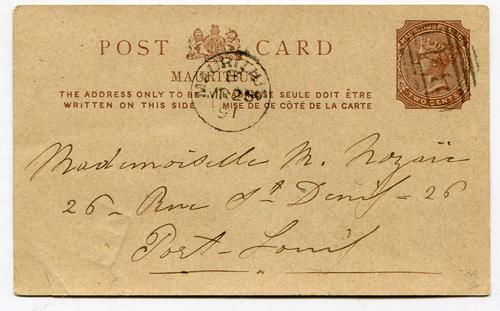 POST CARD
MAURITIUS
THE ADDRESS ONLY TO BE
WRITTEN ON THIS SIDE
SEULE DOIT ÊTRE
MISE DE CE CÔTÉ DE LA CARTE
MAURITIUS
B
MR 25
91
TWO CENTS
Mademoiselle M. Nozaïc
26 - Rue St Denis - 26
Port-Louis